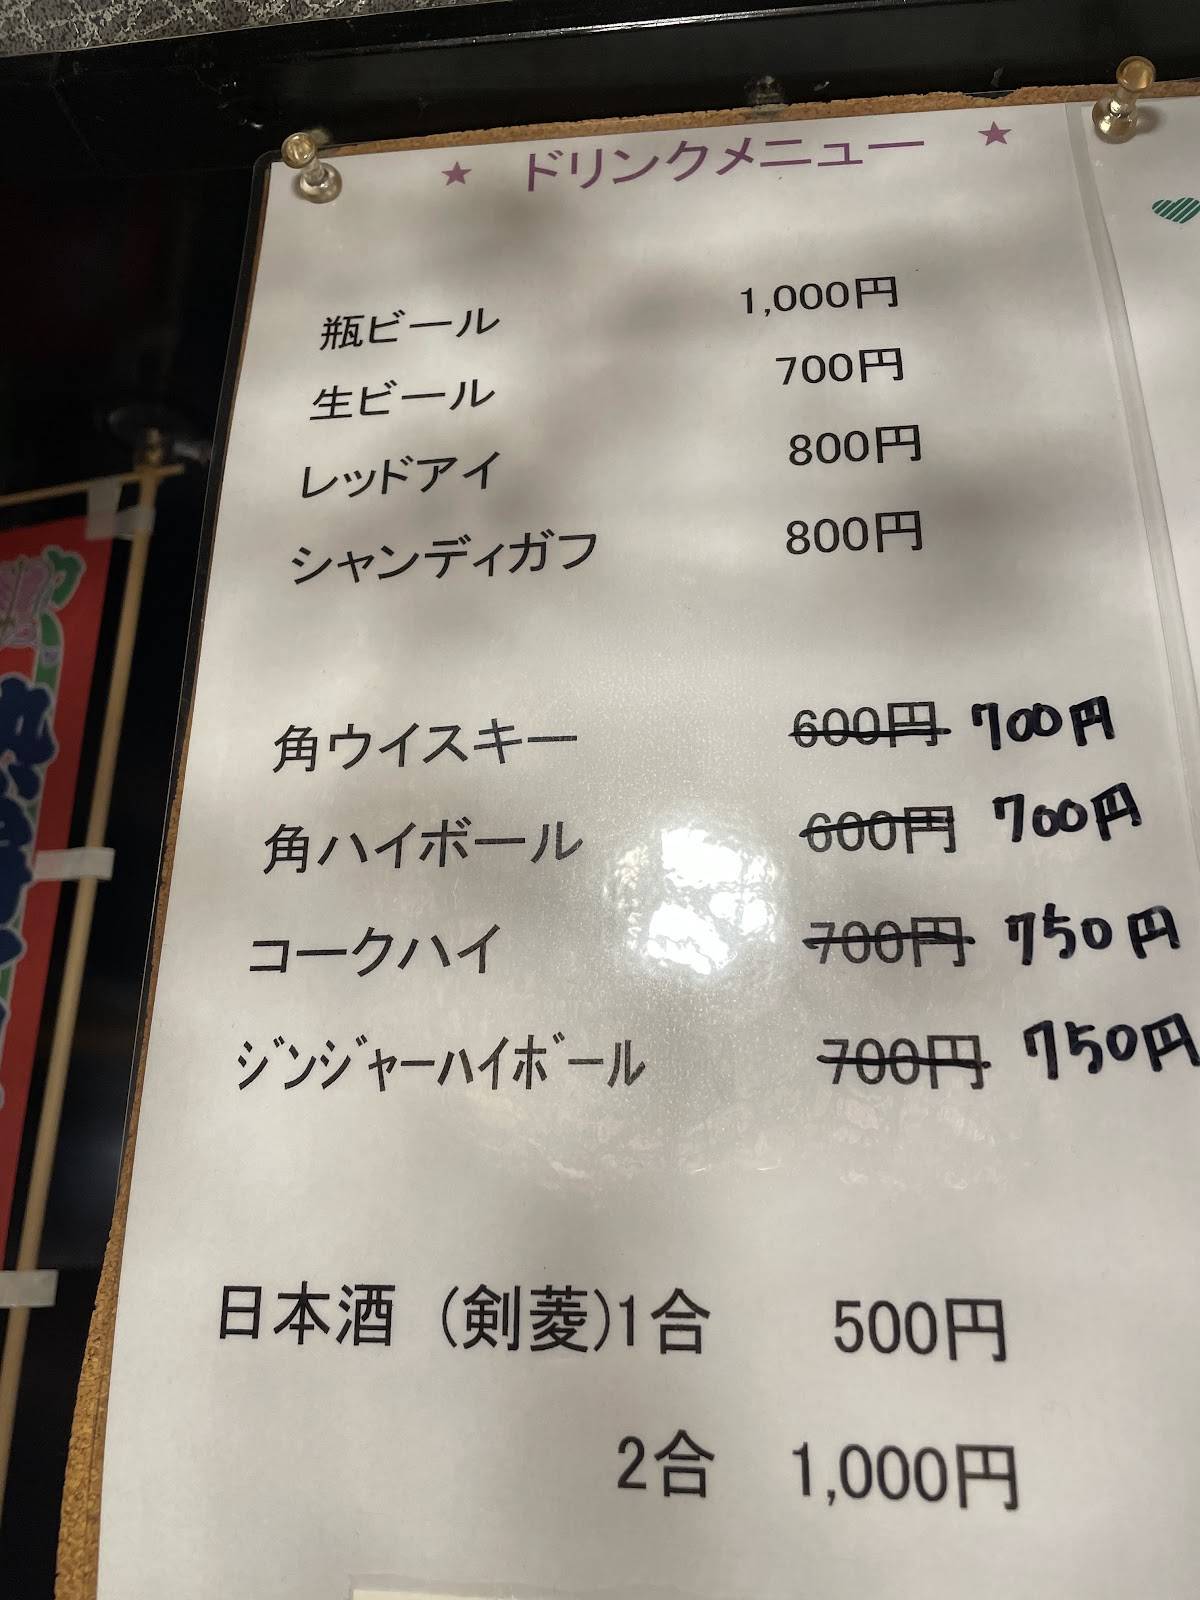 ★ ドリンクメニュー ★
瓶ビール 1,000円
生ビール 700円
レッドアイ 800円
シャンディガフ 800円
角ウイスキー 600円 700円
角ハイボール 600円 700円
コークハイ 700円 750円
ｼﾞﾝｼﾞｬｰﾊｲﾎﾞｰﾙ 700円 750円
日本酒 (剣菱)1合 500円
2合 1,000円